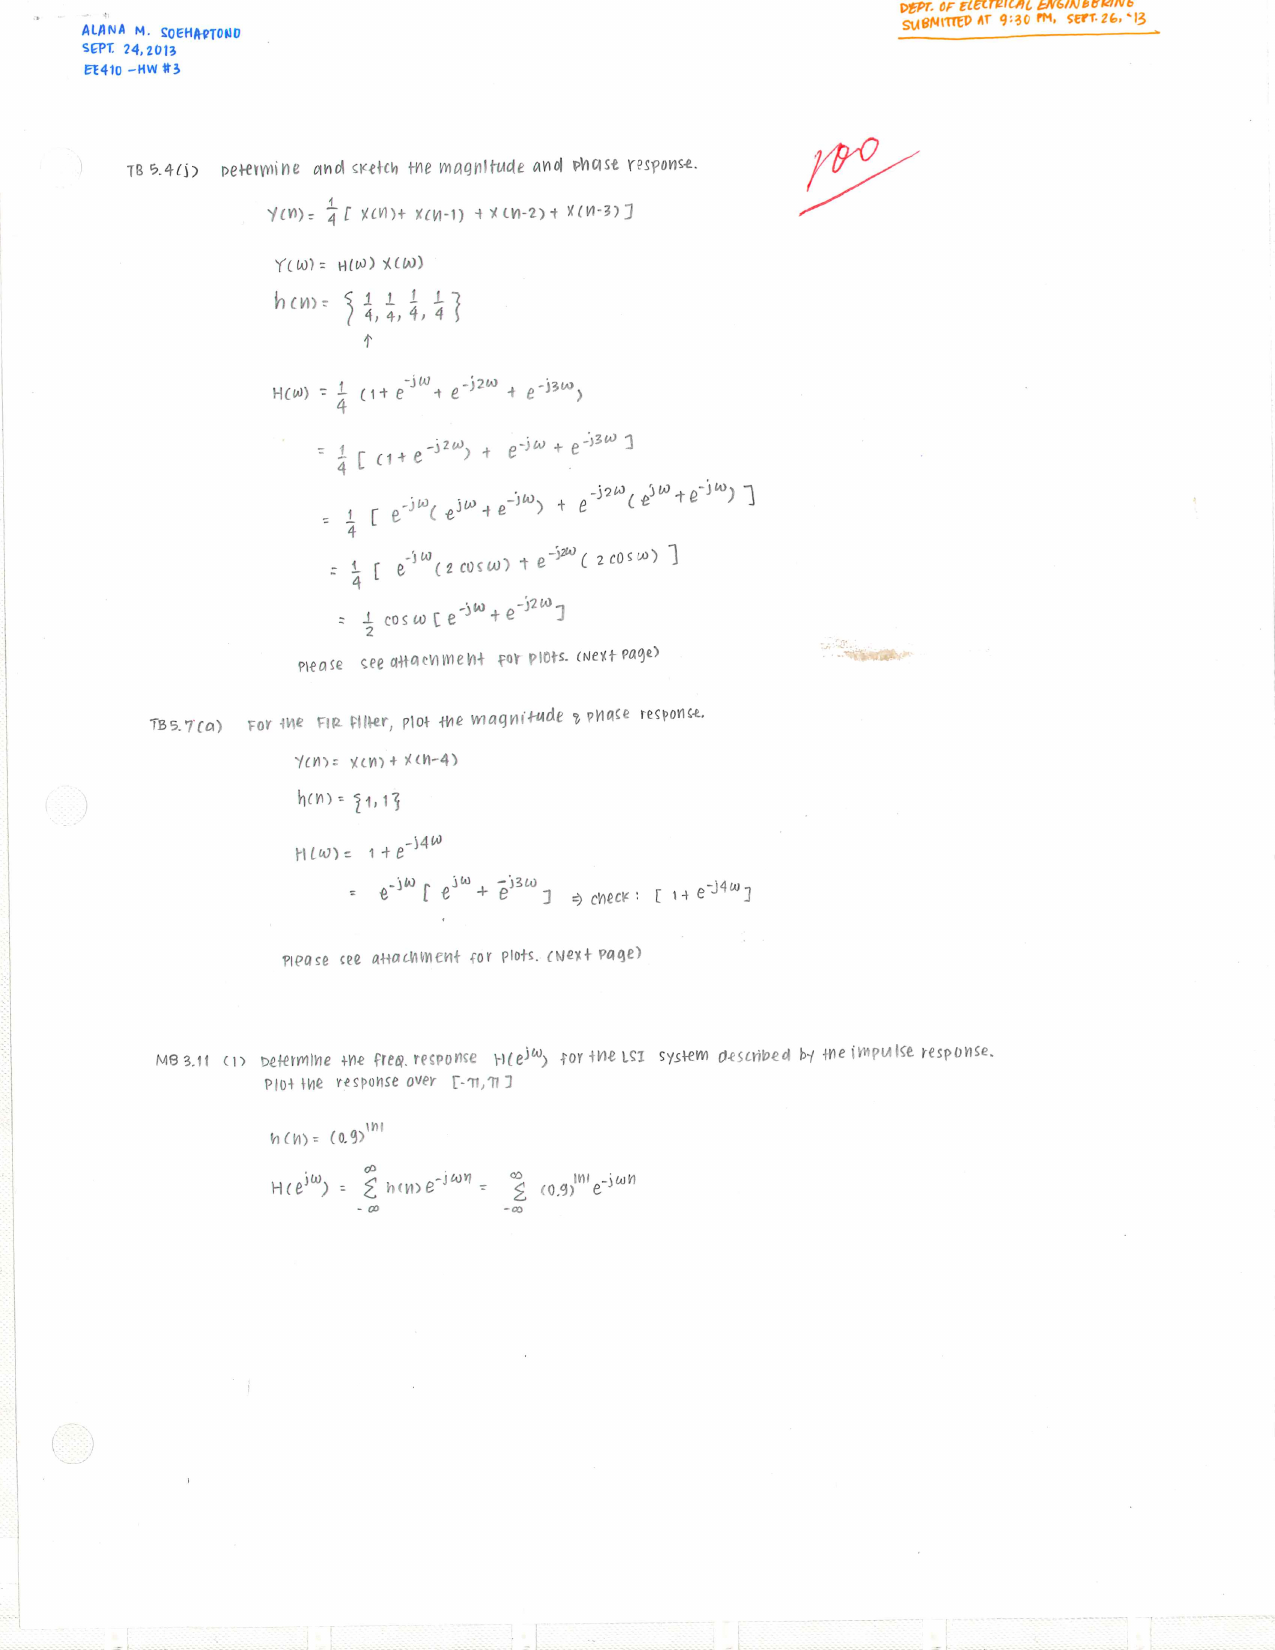 ALANA M. SOEHARTONO
SEPT. 24, 2013
EE410 - HW #3
DEPT. OF ELECTRICAL ENGINEERING
SUBMITTED AT 9:30 PM, SEPT. 26, '13
100
TB 5.4(j) Determine and sketch the magnitude and phase response.
Y(n) = 1/4 [ X(n) + X(n-1) + X(n-2) + X(n-3) ]
Y(ω) = H(ω) X(ω)
h(n) = { 1/4, 1/4, 1/4, 1/4 }
↑
H(ω) = 1/4 (1 + e^-jω + e^-j2ω + e^-j3ω)
= 1/4 [ (1 + e^-j2ω) + e^-jω + e^-j3ω ]
= 1/4 [ e^-jω ( e^jω + e^-jω) + e^-j2ω ( e^jω + e^-jω) ]
= 1/4 [ e^-jω (2 cos ω) + e^-j2ω ( 2 cos ω) ]
= 1/2 cos ω [ e^-jω + e^-j2ω ]
Please see attachment for plots. (Next Page)
TB 5.7(a) For the FIR filter, plot the magnitude & phase response.
Y(n) = X(n) + X(n-4)
h(n) = {1, 1}
H(ω) = 1 + e^-j4ω
= e^-jω [ e^jω + e^-j3ω ] ⇒ check: [ 1 + e^-j4ω ]
Please see attachment for plots. (Next Page)
MB 3.11 (1) Determine the freq. response H(e^jω) for the LSI system described by the impulse response.
Plot the response over [-π, π]
h(n) = (0.9)^|n|
H(e^jω) = ∑_{-∞}^{∞} h(n) e^-jωn = ∑_{-∞}^{∞} (0.9)^|n| e^-jωn